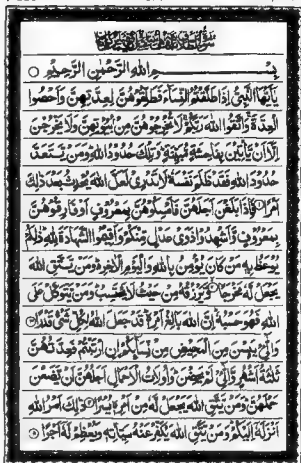 بِسْمِ اللهِ الرَّحْمٰنِ الرَّحِيْمِ
يٰٓاَيُّهَا النَّبِيُّ اِذَا طَلَّقْتُمُ النِّسَآءَ فَطَلِّقُوْهُنَّ لِعِدَّتِهِنَّ وَاَحْصُوا
الْعِدَّةَ وَاتَّقُوا اللهَ رَبَّكُمْ لَا تُخْرِجُوْهُنَّ مِنْ بُيُوْتِهِنَّ وَلَا يَخْرُجْنَ
اِلَّآ اَنْ يَّاْتِيْنَ بِفَاحِشَةٍ مُّبَيِّنَةٍ وَتِلْكَ حُدُوْدُ اللهِ وَمَنْ يَّتَعَدَّ
حُدُوْدَ اللهِ فَقَدْ ظَلَمَ نَفْسَهٗ لَا تَدْرِيْ لَعَلَّ اللهَ يُحْدِثُ بَعْدَ ذٰلِكَ
اَمْرًا فَاِذَا بَلَغْنَ اَجَلَهُنَّ فَاَمْسِكُوْهُنَّ بِمَعْرُوْفٍ اَوْ فَارِقُوْهُنَّ
بِمَعْرُوْفٍ وَّاَشْهِدُوْا ذَوَيْ عَدْلٍ مِّنْكُمْ وَاَقِيْمُوا الشَّهَادَةَ لِلّٰهِ ذٰلِكُمْ
يُوْعَظُ بِهٖ مَنْ كَانَ يُؤْمِنُ بِاللهِ وَالْيَوْمِ الْاٰخِرِ وَمَنْ يَّتَّقِ اللهَ
يَجْعَلْ لَّهٗ مَخْرَجًا وَّيَرْزُقْهُ مِنْ حَيْثُ لَا يَحْتَسِبُ وَمَنْ يَّتَوَكَّلْ عَلَى
اللهِ فَهُوَ حَسْبُهٗ اِنَّ اللهَ بَالِغُ اَمْرِهٖ قَدْ جَعَلَ اللهُ لِكُلِّ شَيْءٍ قَدْرًا
وَالّٰٓـِٔيْ يَئِسْنَ مِنَ الْمَحِيْضِ مِنْ نِّسَآئِكُمْ اِنِ ارْتَبْتُمْ فَعِدَّتُهُنَّ
ثَلٰثَةُ اَشْهُرٍ وَّالّٰٓـِٔيْ لَمْ يَحِضْنَ وَاُولَاتُ الْاَحْمَالِ اَجَلُهُنَّ اَنْ يَّضَعْنَ
حَمْلَهُنَّ وَمَنْ يَّتَّقِ اللهَ يَجْعَلْ لَّهٗ مِنْ اَمْرِهٖ يُسْرًا ذٰلِكَ اَمْرُ اللهِ
اَنْزَلَهٗٓ اِلَيْكُمْ وَمَنْ يَّتَّقِ اللهَ يُكَفِّرْ عَنْهُ سَيِّاٰتِهٖ وَيُعْظِمْ لَهٗٓ اَجْرًا